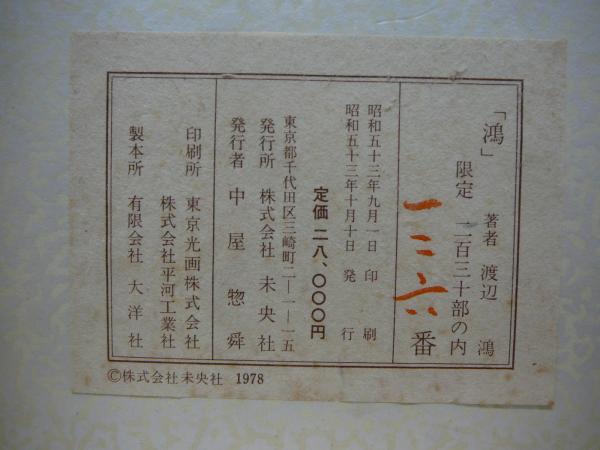 「鴻」 著者 渡辺 鴻
限定 二百三十部の内
一二六番
昭和五十三年九月一日 印刷
昭和五十三年十月十日 発行
定価 二八、〇〇〇円
東京都千代田区三崎町二―一―一五
発行所 株式会社 未央社
発行者 中屋惣舜
印刷所 東京光画株式会社
株式会社平河工業社
製本所 有限会社 大洋社
©株式会社未央社 1978